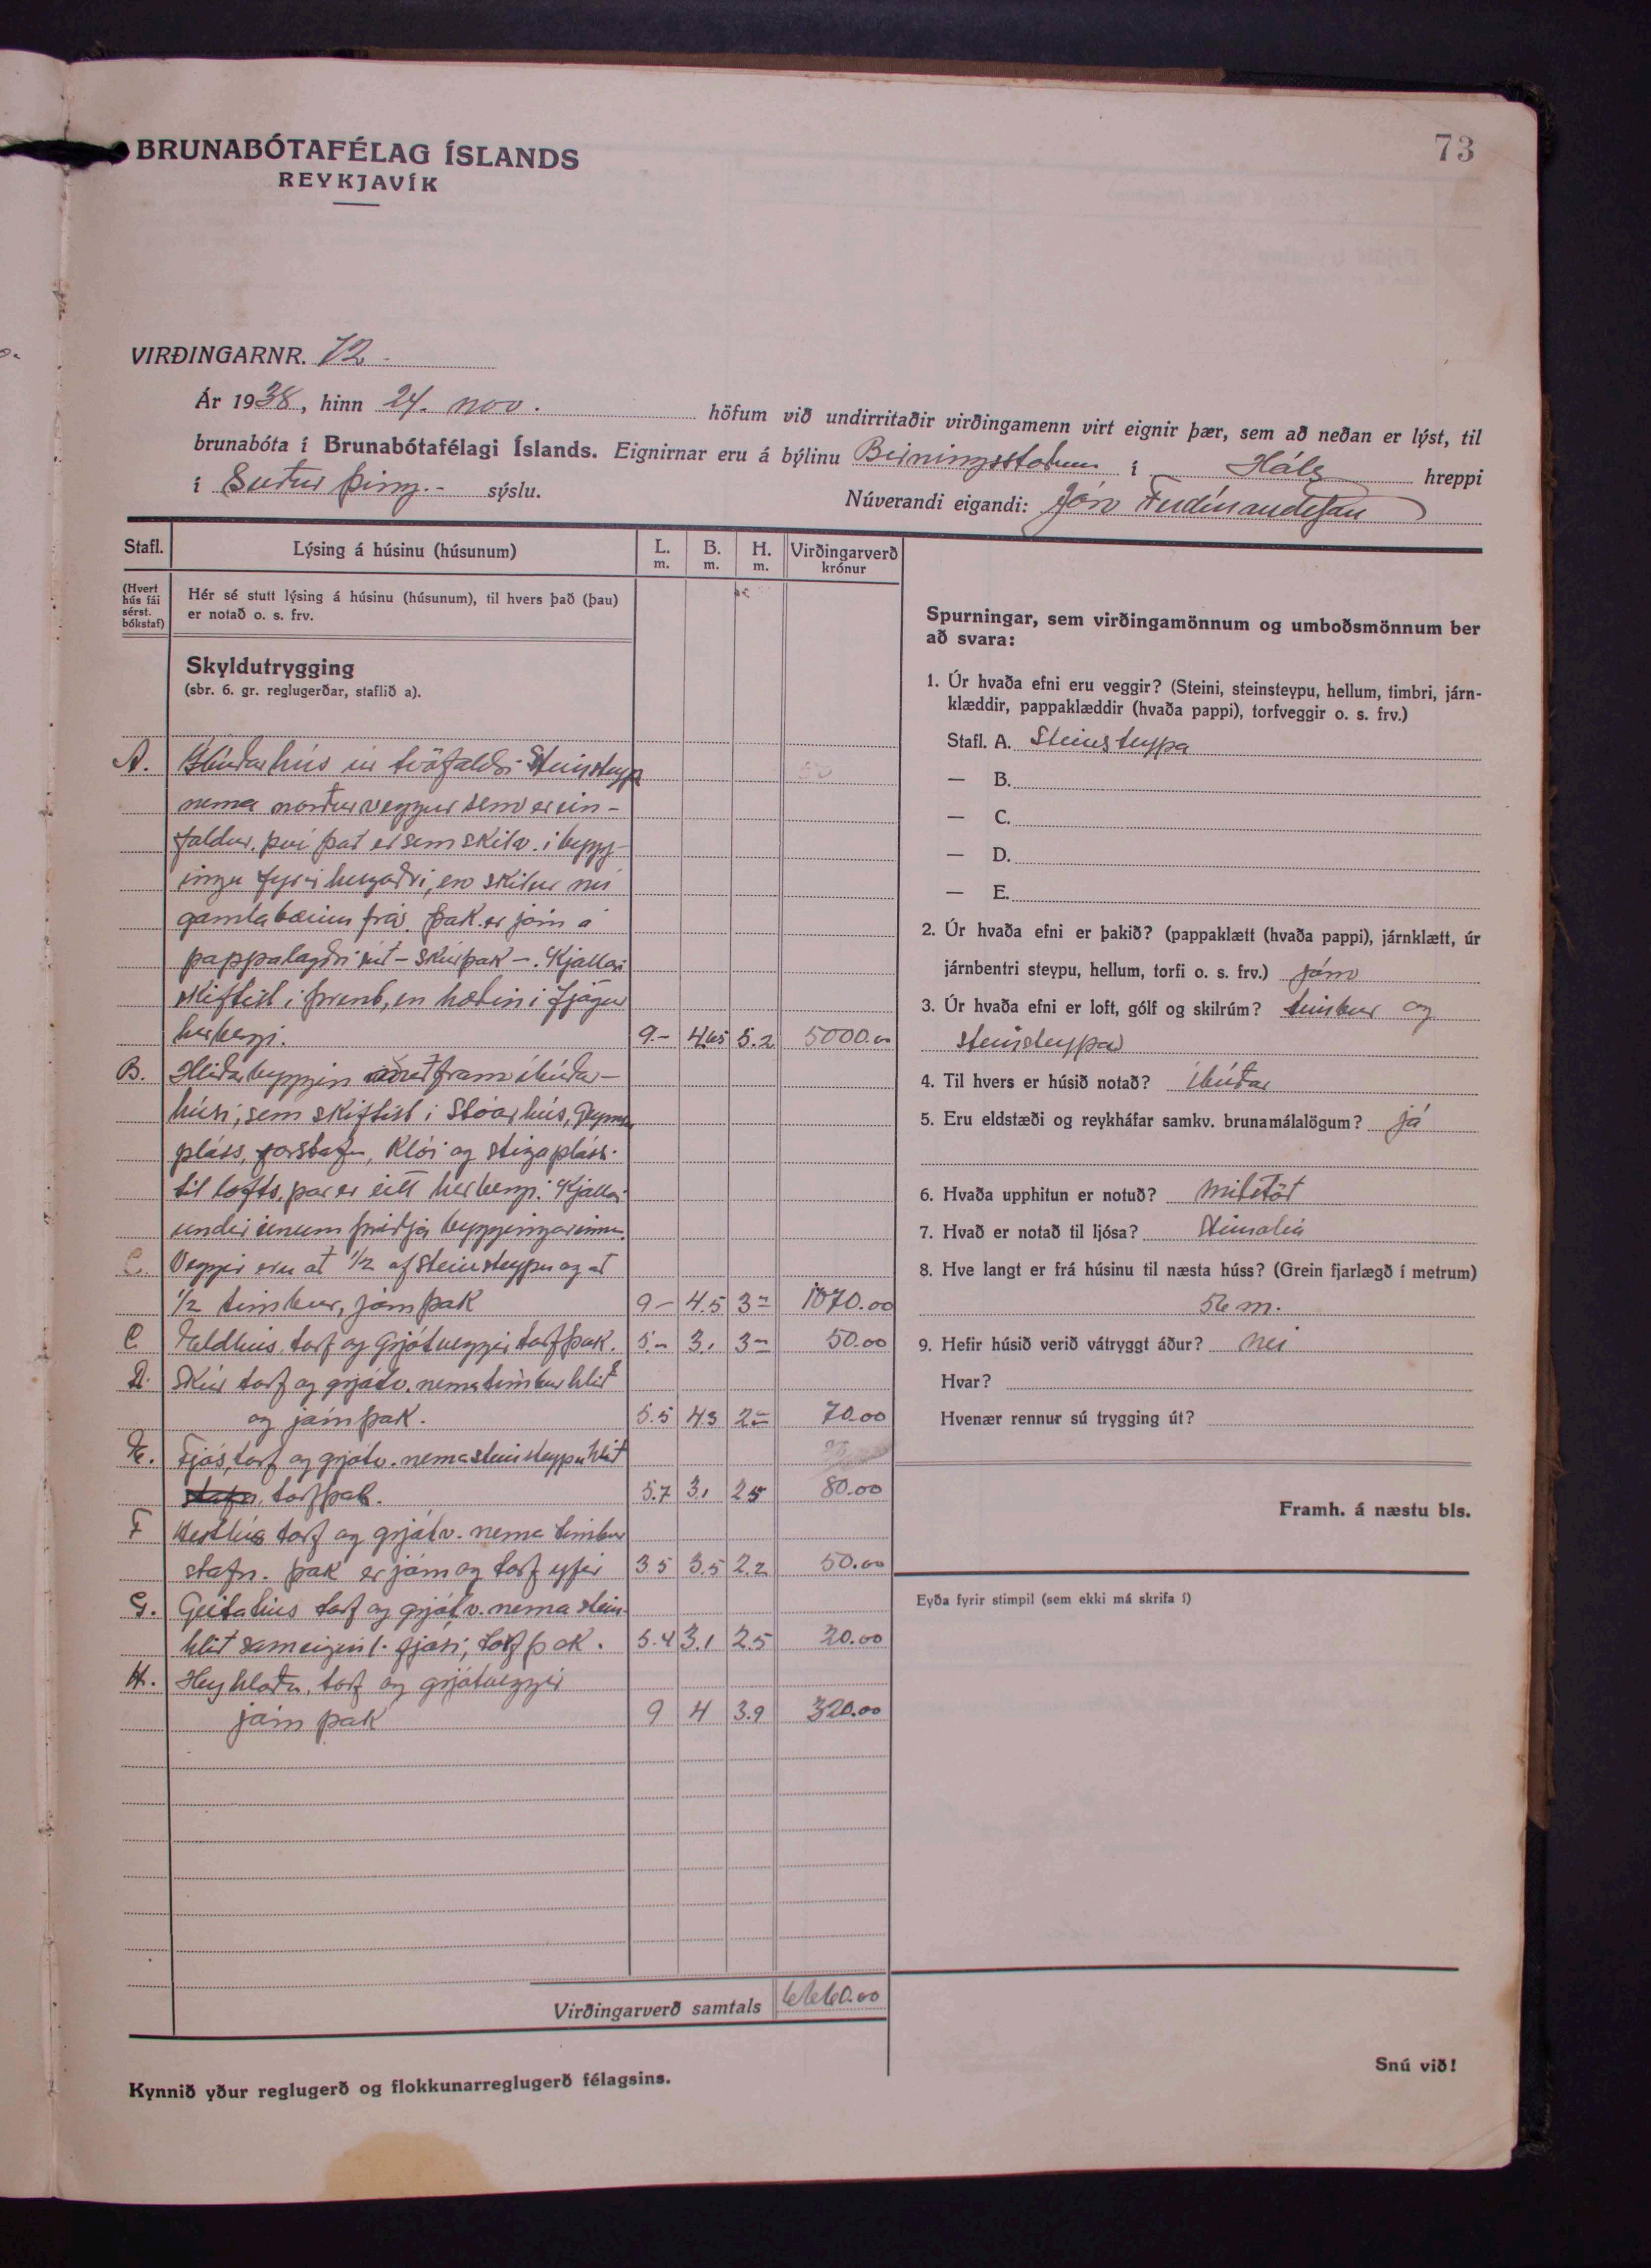 73
BRUNABÓTAFÉLAG ÍSLANDS
REYKJAVÍK
VIRÐINGARNR. 72.
Ár 1938, hinn 24. nov. höfum við undirritaðir virðingamenn virt eignir þær, sem að neðan er lýst, til
brunabóta í Brunabótafélagi Íslands. Eignirnar eru á býlinu Birningsstöðum í Háls hreppi
í Suður þing.- sýslu. Núverandi eigandi: Jón Ferdínandsson
Stafl. Lýsing á húsinu (húsunum) L. m. B. m. H. m. Virðingarverð krónur
(Hvert hús fái sérst. bókstaf) Hér sé stutt lýsing á húsinu (húsunum), til hvers það (þau)
er notað o. s. frv.
Skyldutrygging
(sbr. 6. gr. reglugerðar, staflið a).
A. Íbúðarhús úr tvöfaldri Steinsteypu
nema norðurveggur sem er ein-
faldur, því það er sem skilv. í bygg-
ingu fyrir hugaðri, en skilur nú
gamla bæinn frá. Þak er járn á
pappalagðri súð - skúrþak -. Kjallari
skiftist í þrent, en hæðin í fjögur
herbergi. 9.- 4.65 5.2 5000.00
B. Hliðarbyggin fram íbúðar-
húsi, sem skiftist í Stóarhús, Geymslu
pláss, forstofu, Kló og stigapláss
til lofts, þar er eitt herbergi. Kjallari
undir einum þriðja byggingarinnar.
Veggir eru að 1/2 af steinsteypu og að
1/2 timbur, járnþak 9- 4.5 3- 1070.00
C. Eldhús, torf og Grjótveggir torfþak. 5.- 3.1 3- 50.00
D. Skúr torf og grjótv. nema timburhlið
og járnþak. 5.5 4.3 2- 70.00
E. Fjós, torf og grjótv. nema steinsteypuhlið
torfþak. 5.7 3.1 2.5 80.00
F Hesthús torf og grjótv. nema timbur
stafn. þak er járn og torf yfir 3.5 3.5 2.2 50.00
G. Geitahús torf og grjótv. nema stein-
hlið sameiginl. fjósi; torfþak. 5.4 3.1 2.5 20.00
H. Heyhlaða, torf og grjótveggir
járn þak 9 4 3.9 320.00
Virðingarverð samtals 6660.00
Kynnið yður reglugerð og flokkunarreglugerð félagsins.
Spurningar, sem virðingamönnum og umboðsmönnum ber
að svara:
1. Úr hvaða efni eru veggir? (Steini, steinsteypu, hellum, timbri, járn-
klæddir, pappaklæddir (hvaða pappi), torfveggir o. s. frv.)
Stafl. A. Steinsteypa
— B.
— C.
— D.
— E.
2. Úr hvaða efni er þakið? (pappaklætt (hvaða pappi), járnklætt, úr
járnbentri steypu, hellum, torfi o. s. frv.) járn
3. Úr hvaða efni er loft, gólf og skilrúm? timbur og
steinsteypa
4. Til hvers er húsið notað? íbúðar
5. Eru eldstæði og reykháfar samkv. brunamálalögum? já
6. Hvaða upphitun er notuð? miðstöð
7. Hvað er notað til ljósa? Steinolía
8. Hve langt er frá húsinu til næsta húss? (Grein fjarlægð í metrum)
56 m.
9. Hefir húsið verið vátryggt áður? nei
Hvar?
Hvenær rennur sú trygging út?
Framh. á næstu bls.
Eyða fyrir stimpil (sem ekki má skrifa í)
Snú við!